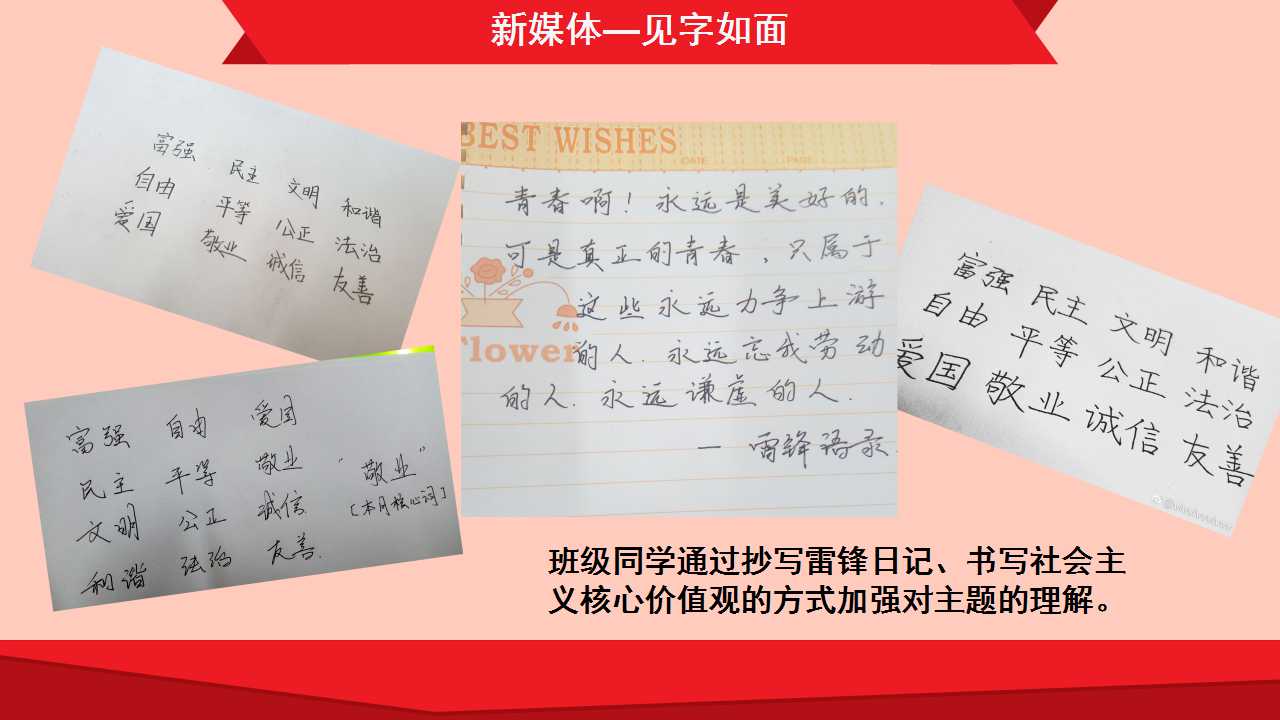 新媒体—见字如面
富强 民主 文明 和谐
自由 平等 公正 法治
爱国 敬业 诚信 友善
BEST WISHES
DATE PAGE
青春啊！永远是美好的.
可是真正的青春，只属于
这些永远力争上游
的人.永远忘我劳动
的人.永远谦虚的人.
— 雷锋语录.
Flower
富强 民主 文明 和谐
自由 平等 公正 法治
爱国 敬业 诚信 友善
富强 自由 爱国
民主 平等 敬业 “敬业”
文明 公正 诚信 [本月核心词]
和谐 法治 友善.
班级同学通过抄写雷锋日记、书写社会主
义核心价值观的方式加强对主题的理解。